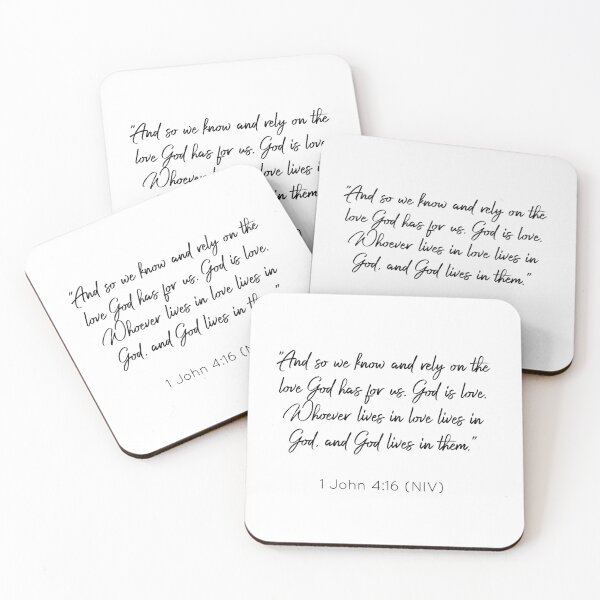 "And so we know and rely on the
love God has for us. God is love
Whoever love lives
in them."
"And so we know and rely on the
love God has for us. God is love.
Whoever lives in love lives in
God, and God lives in them."
"And so we know and rely on the
love God has for us. God is love.
Whoever lives in love lives in
God, and God lives in
1 John 4:16
"And so we know and rely on the
love God has for us. God is love.
Whoever lives in love lives in
God, and God lives in them."
1 John 4:16 (NIV)